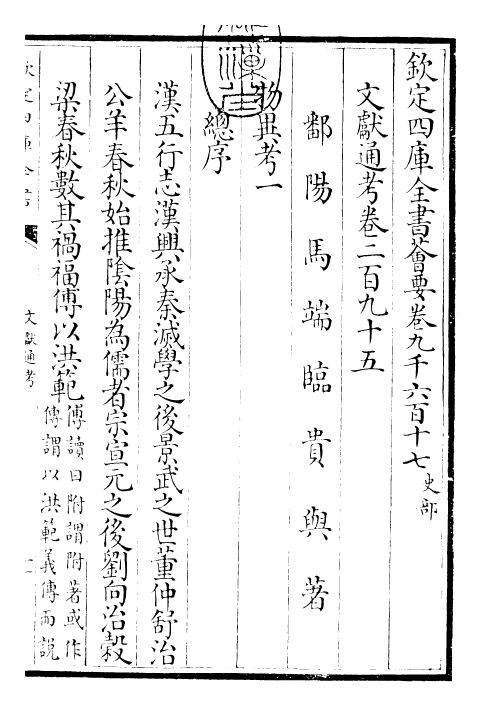 欽定四庫全書薈要卷九千六百十七 史部
文獻通考卷二百九十五
鄱陽馬端臨貴與著
物異考一
總序
漢五行志漢興承秦滅學之後景武之世董仲舒治
公羊春秋始推陰陽為儒者宗宣元之後劉向治穀
梁春秋數其禍福傅以洪範傅讀曰附謂附著或作
傳謂以洪範義傳而說
文獻通考